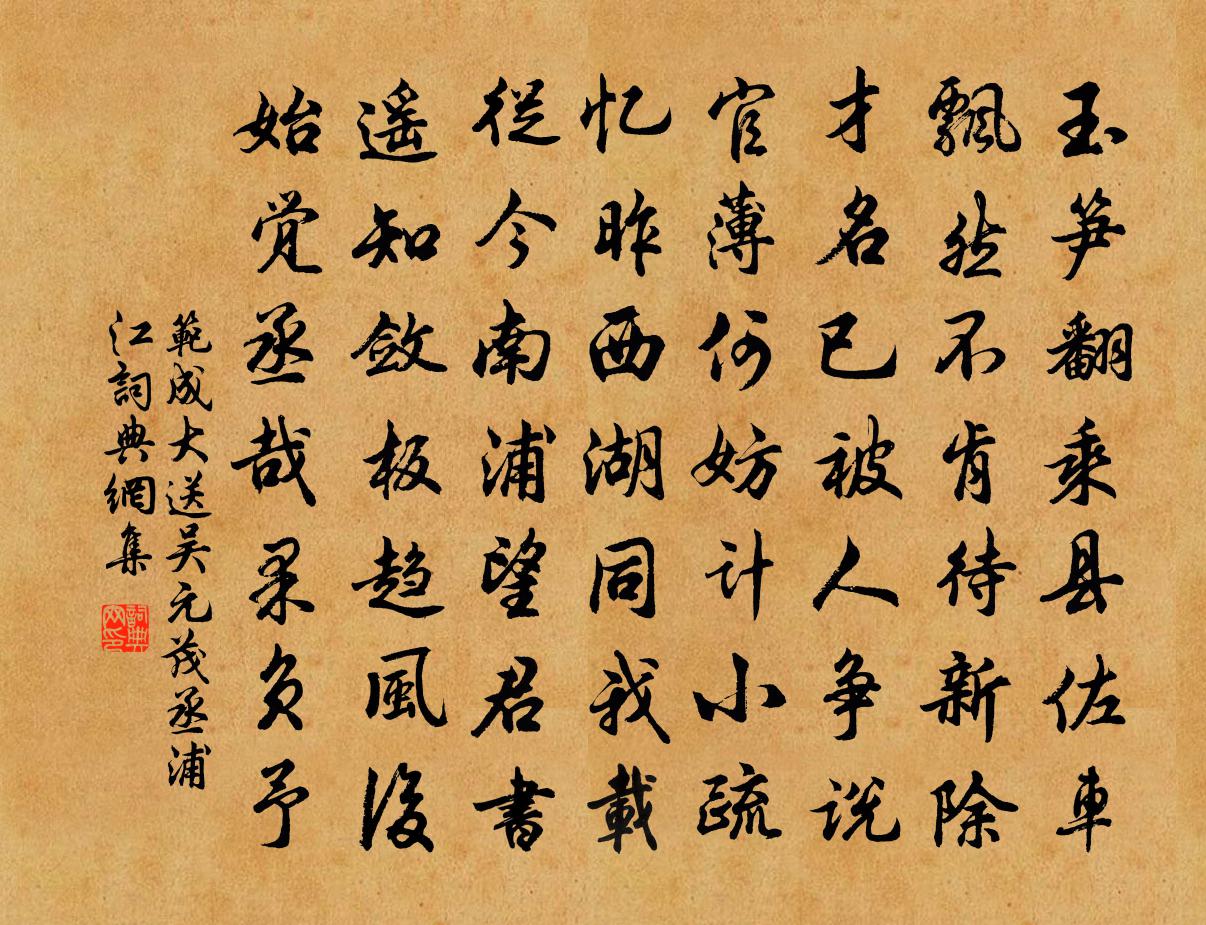 玉笋翻乘县佐車
飄然不肯待新除
才名已被人争说
官薄何妨计小疏
忆昨西湖同我載
從今南浦望君書
遥知敛板趋風後
始觉丞哉果负予
範成大送吴元茂丞浦
江詞典網集
詞典网印